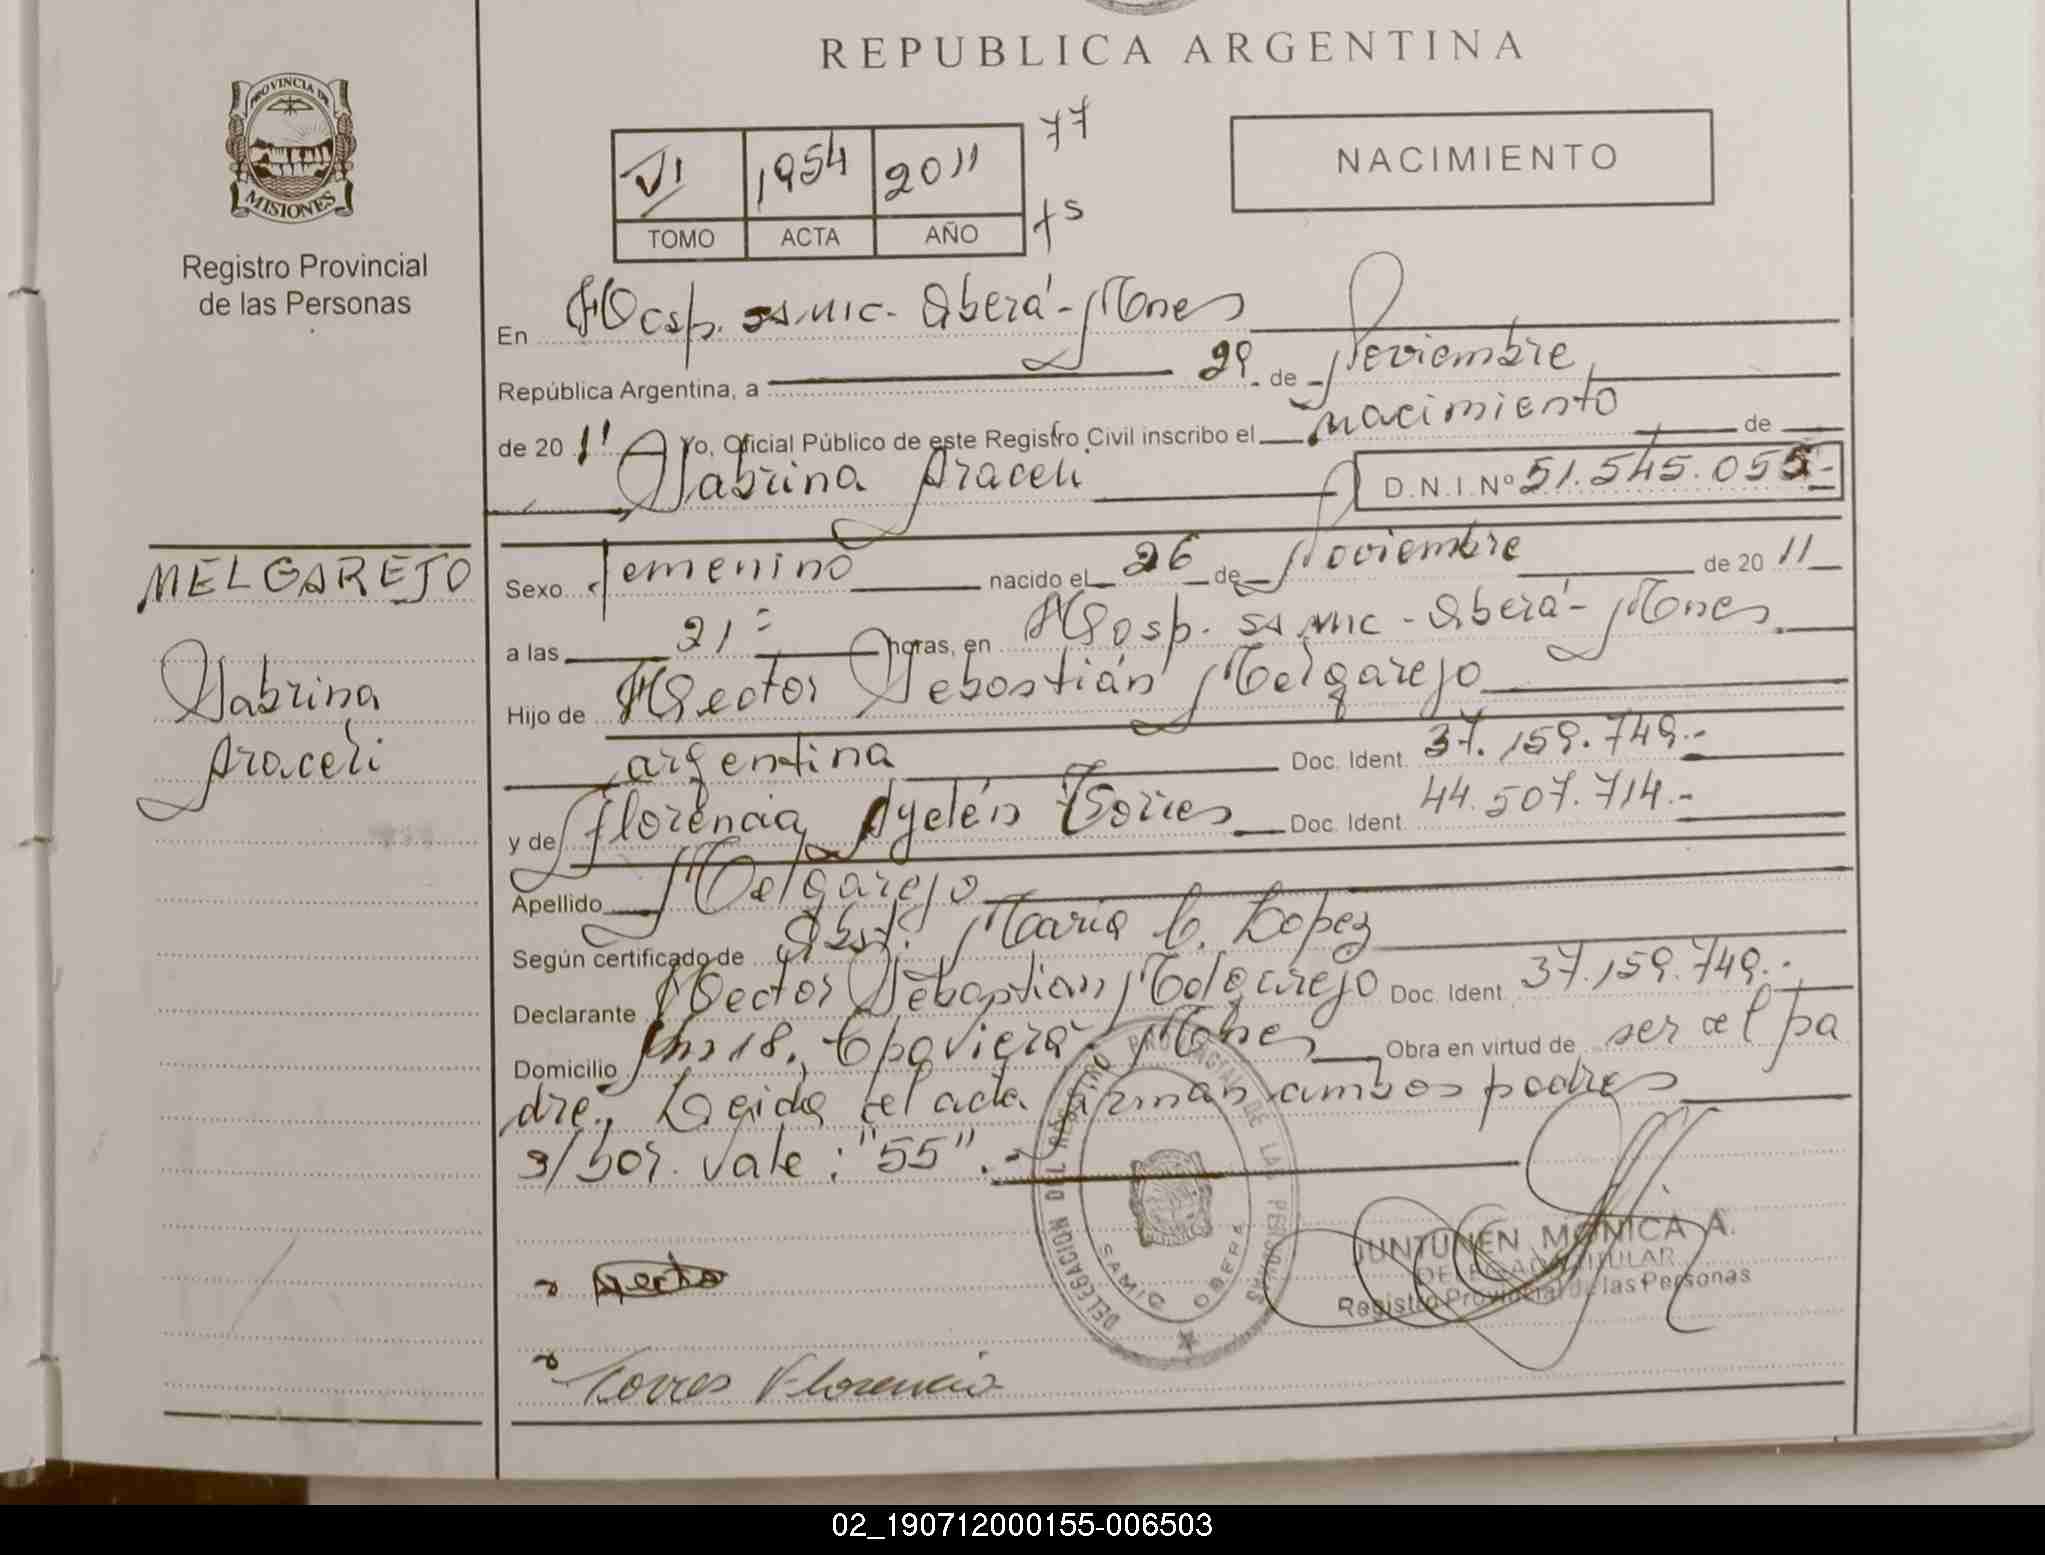 REPUBLICA ARGENTINA
PROVINCIA DE
MISIONES
Registro Provincial
de las Personas
VI 1954 2011
TOMO ACTA AÑO
77
75
NACIMIENTO
En Hosp. SAMIC - Oberá - Mnes
República Argentina, a 29 de Noviembre
de 2011 Yo, Oficial Público de este Registro Civil inscribo el nacimiento de
Sabrina Araceli D.N.I. Nº 51.545.055-
MELGAREJO
Sabrina
Araceli
Sexo femenino nacido el 26 de Noviembre de 2011
a las 21:= horas, en Hosp. SAMIC - Oberá - Mnes
Hijo de Hector Sebastián Melgarejo
argentina Doc. Ident. 37.159.749.-
y de Florencia Ayelén Torres Doc. Ident. 44.507.714.-
Apellido Melgarejo
Según certificado de Obst. Maria C. Lopez
Declarante Hector Sebastian Melgarejo Doc. Ident. 37.159.749.-
Domicilio Km 18, Mnes Obra en virtud de ser el pa
dre., Leida el acta firman ambos padres
s/bor. Vale: "55".-
DELEGACION DEL REGISTRO PROVINCIAL DE LAS PERSONAS
SAMIC OBERA
JUNTUNEN MONICA A.
DELEGADA TITULAR
Registro Provincial de las Personas
Torres Florencia
02_190712000155-006503